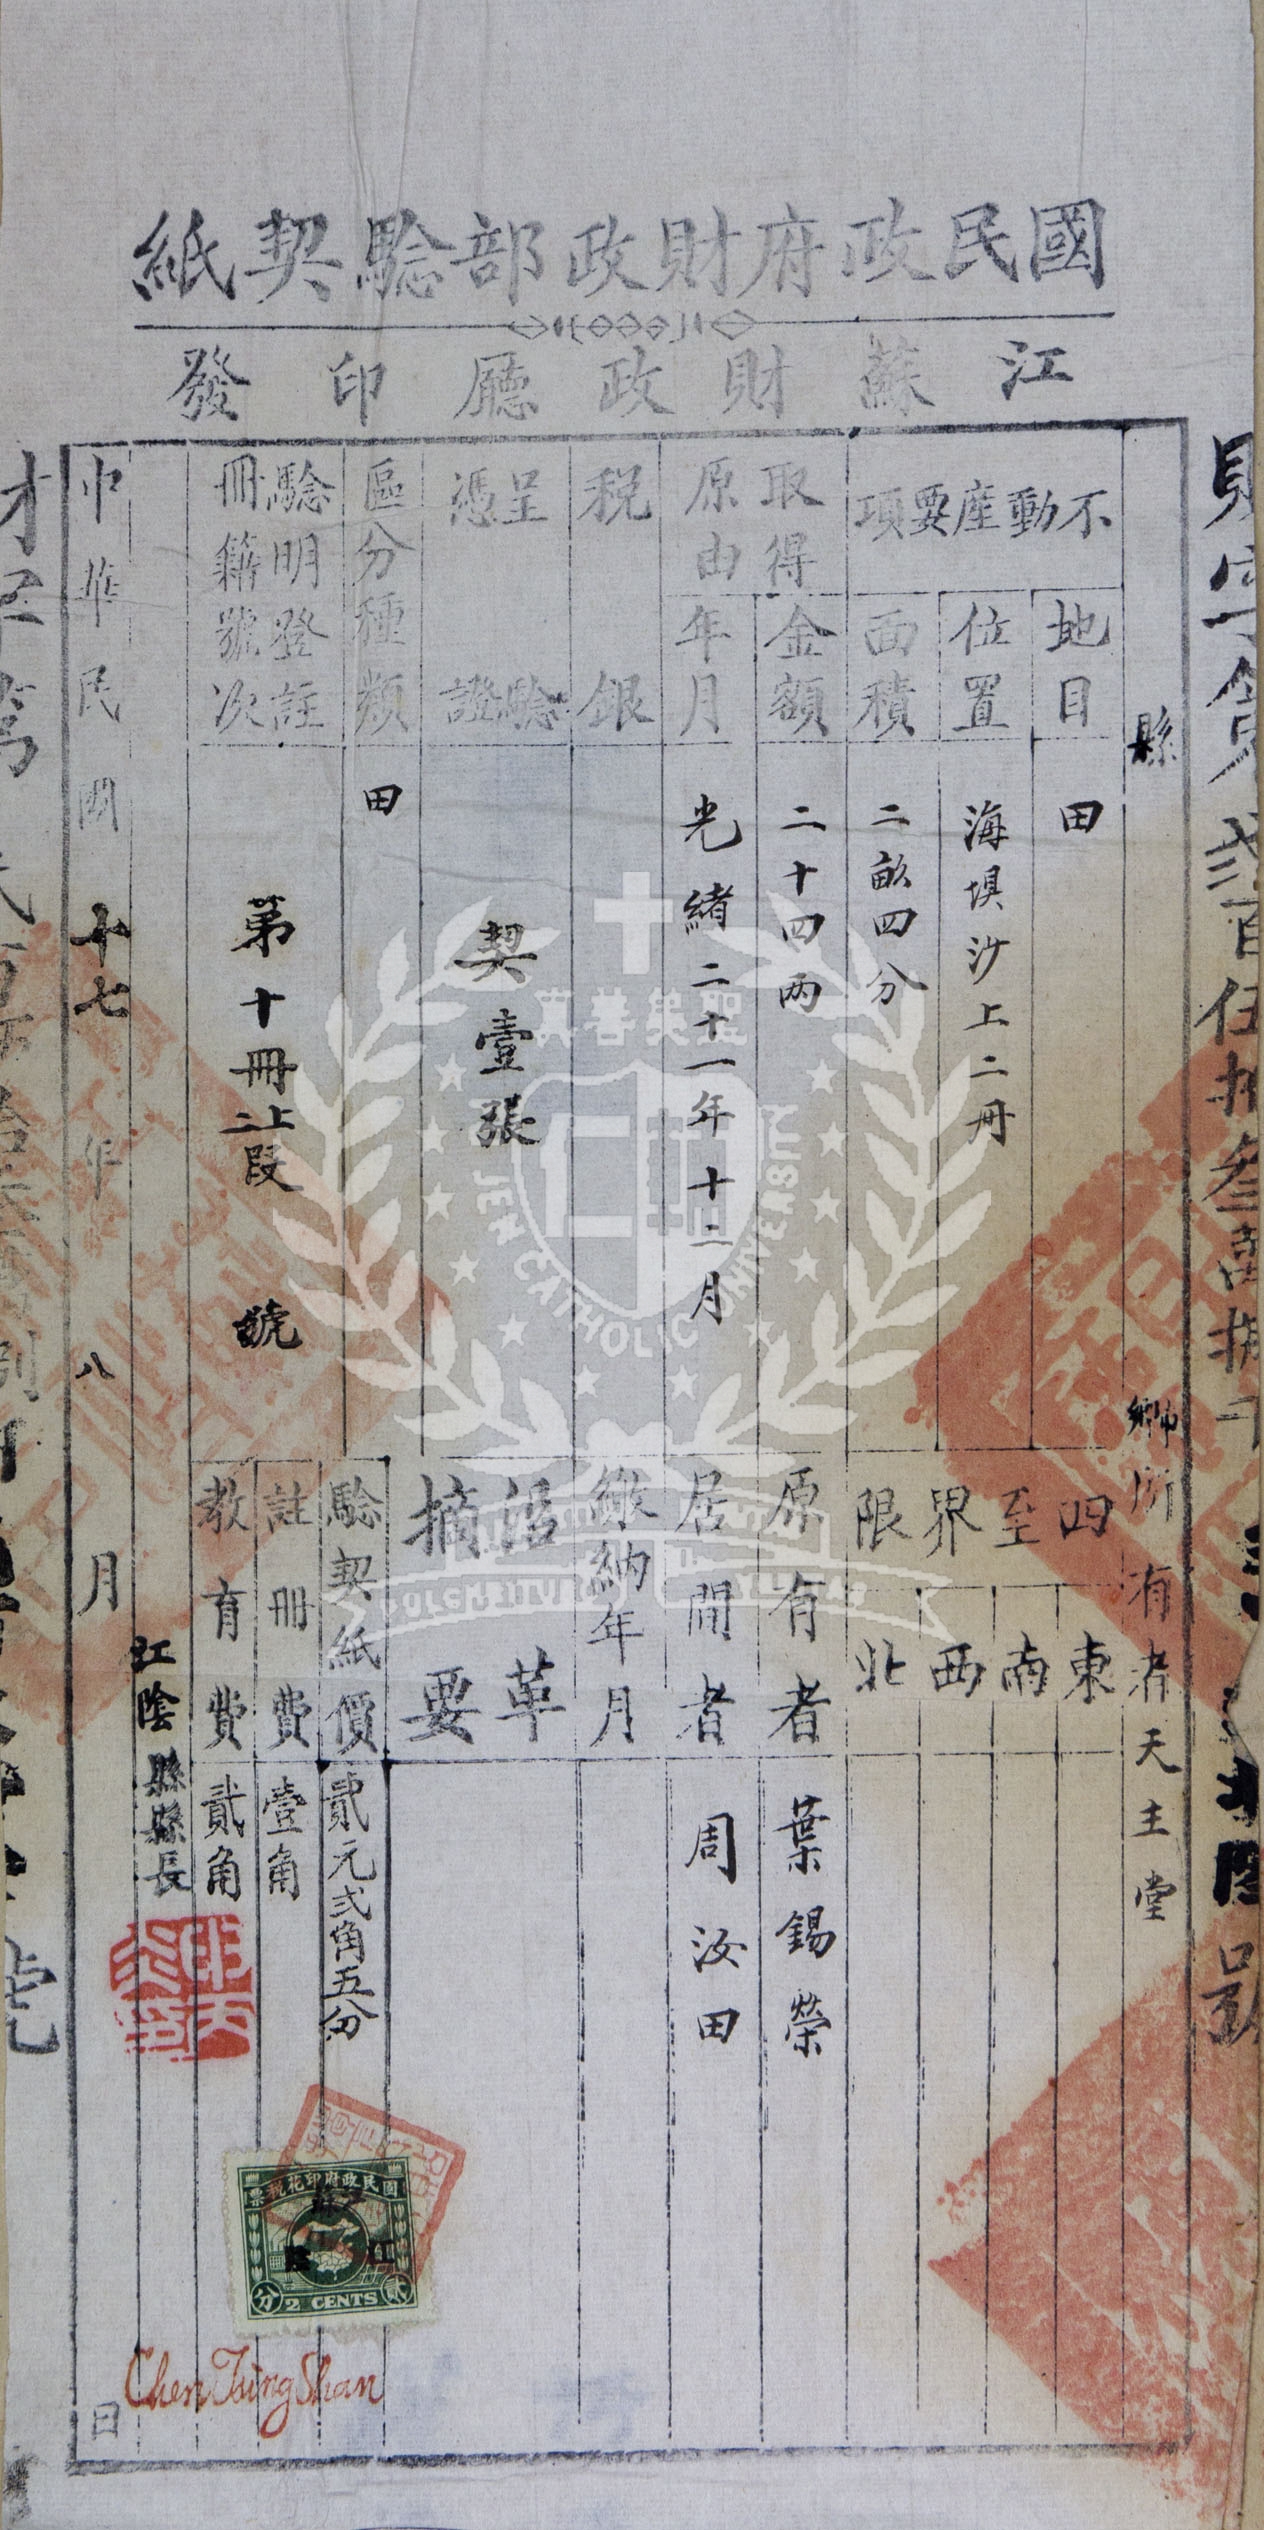 國民政府財政部驗契紙
江蘇財政廳印發
縣 鄉所有者天主堂
不動產要項
地目 田
位置 海壩沙上二冊
面積 二畝四分
四至界限
東
南
西
北
取得原由
金額 二十四両
年月 光緒二十一年十二月
原有者 葉錫榮
居間者 周汝田
税銀
繳納年月
呈驗憑證 契壹張
沿革摘要
區分種類 田
驗契紙價 貳元弍角五分
驗明登註冊籍號次 第十冊上二段 號
註冊費 壹角
教育費 貳角
江陰縣縣長
中華民國十七年八月 日
國民政府印花税票
江陰
分 2 CENTS 貳
Chen Tsing Shan
聖美善真
JEN CATHOLIC UNIVERSITY